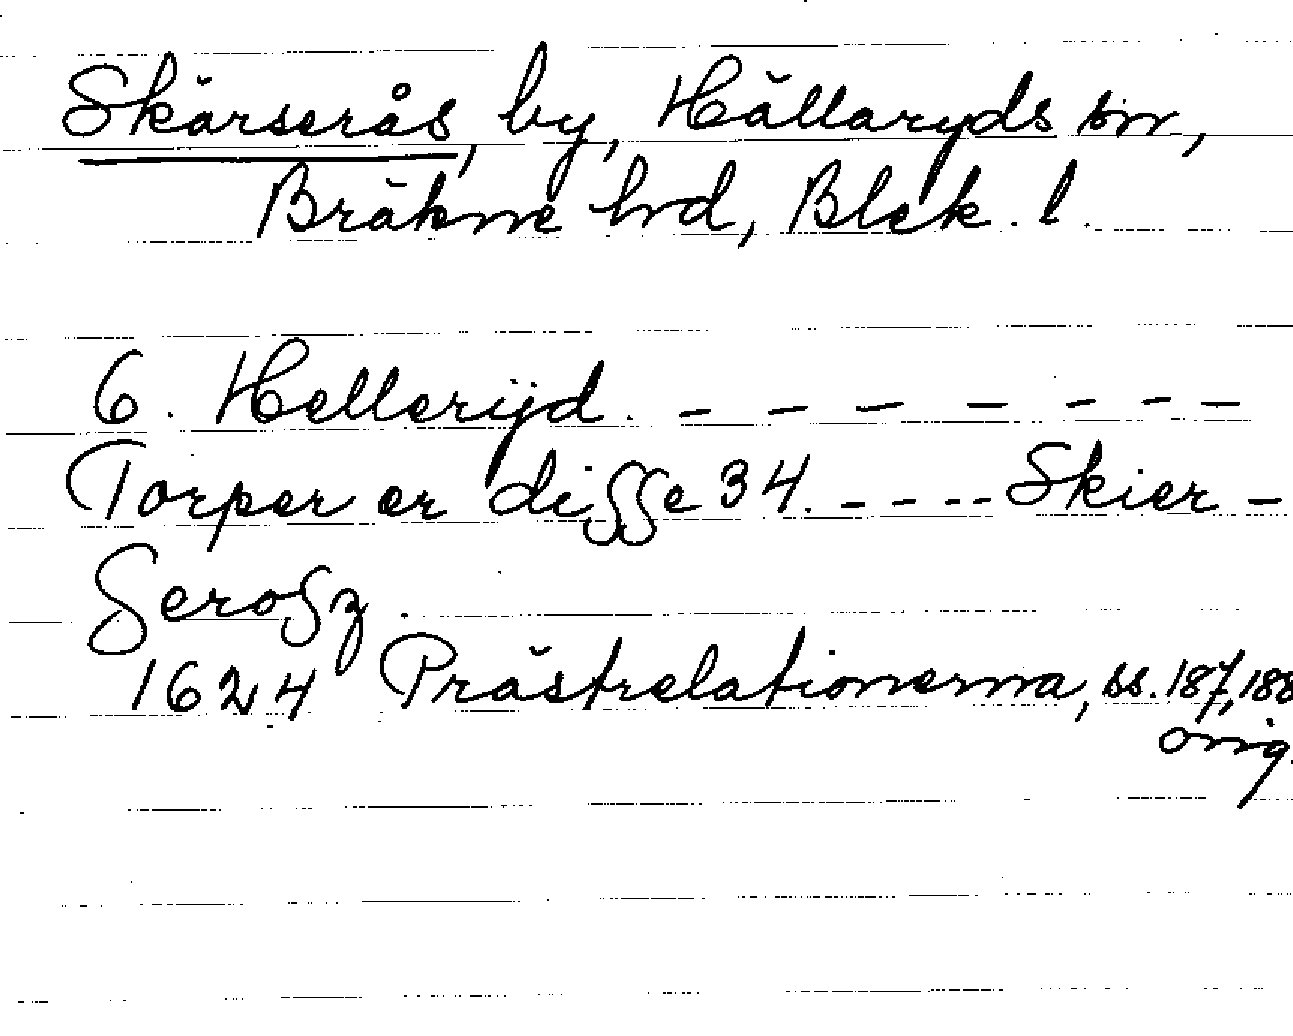 Skärserås, by, Hällaryds sn,
Bräkne hd, Blek. l.
6. Hellerijd. - - - - - - -
Torper er disse 34. - - - - Skier -
Serosz.
1624 Prästrelationerna, ss. 187, 188
orig.